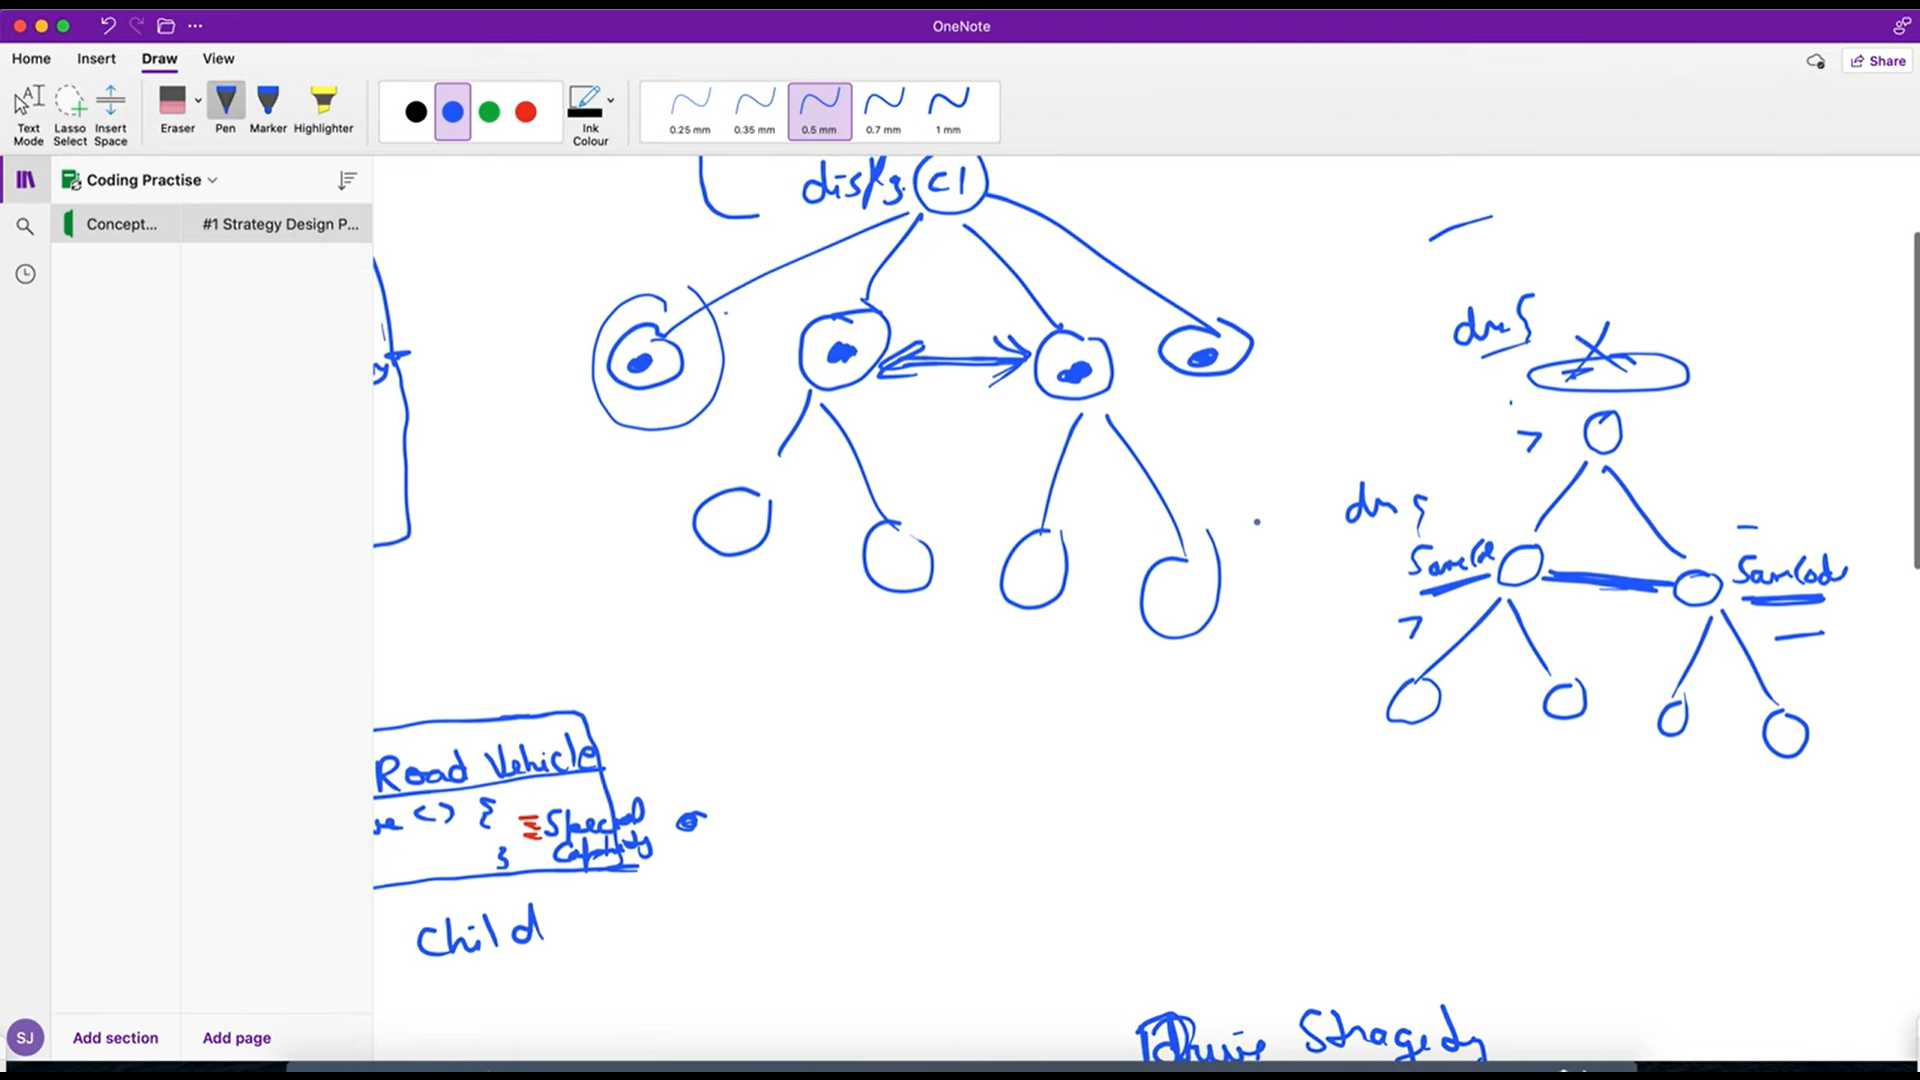 OneNote
Home Insert Draw View
Share
Text Mode
Lasso Select
Insert Space
Eraser
Pen
Marker
Highlighter
Ink Colour
0.25 mm
0.35 mm
0.5 mm
0.7 mm
1 mm
Coding Practise
Concept...
#1 Strategy Design P...
C1
Road Vehicle
< > {
Special
}
Child
Stragedy
SJ
Add section
Add page